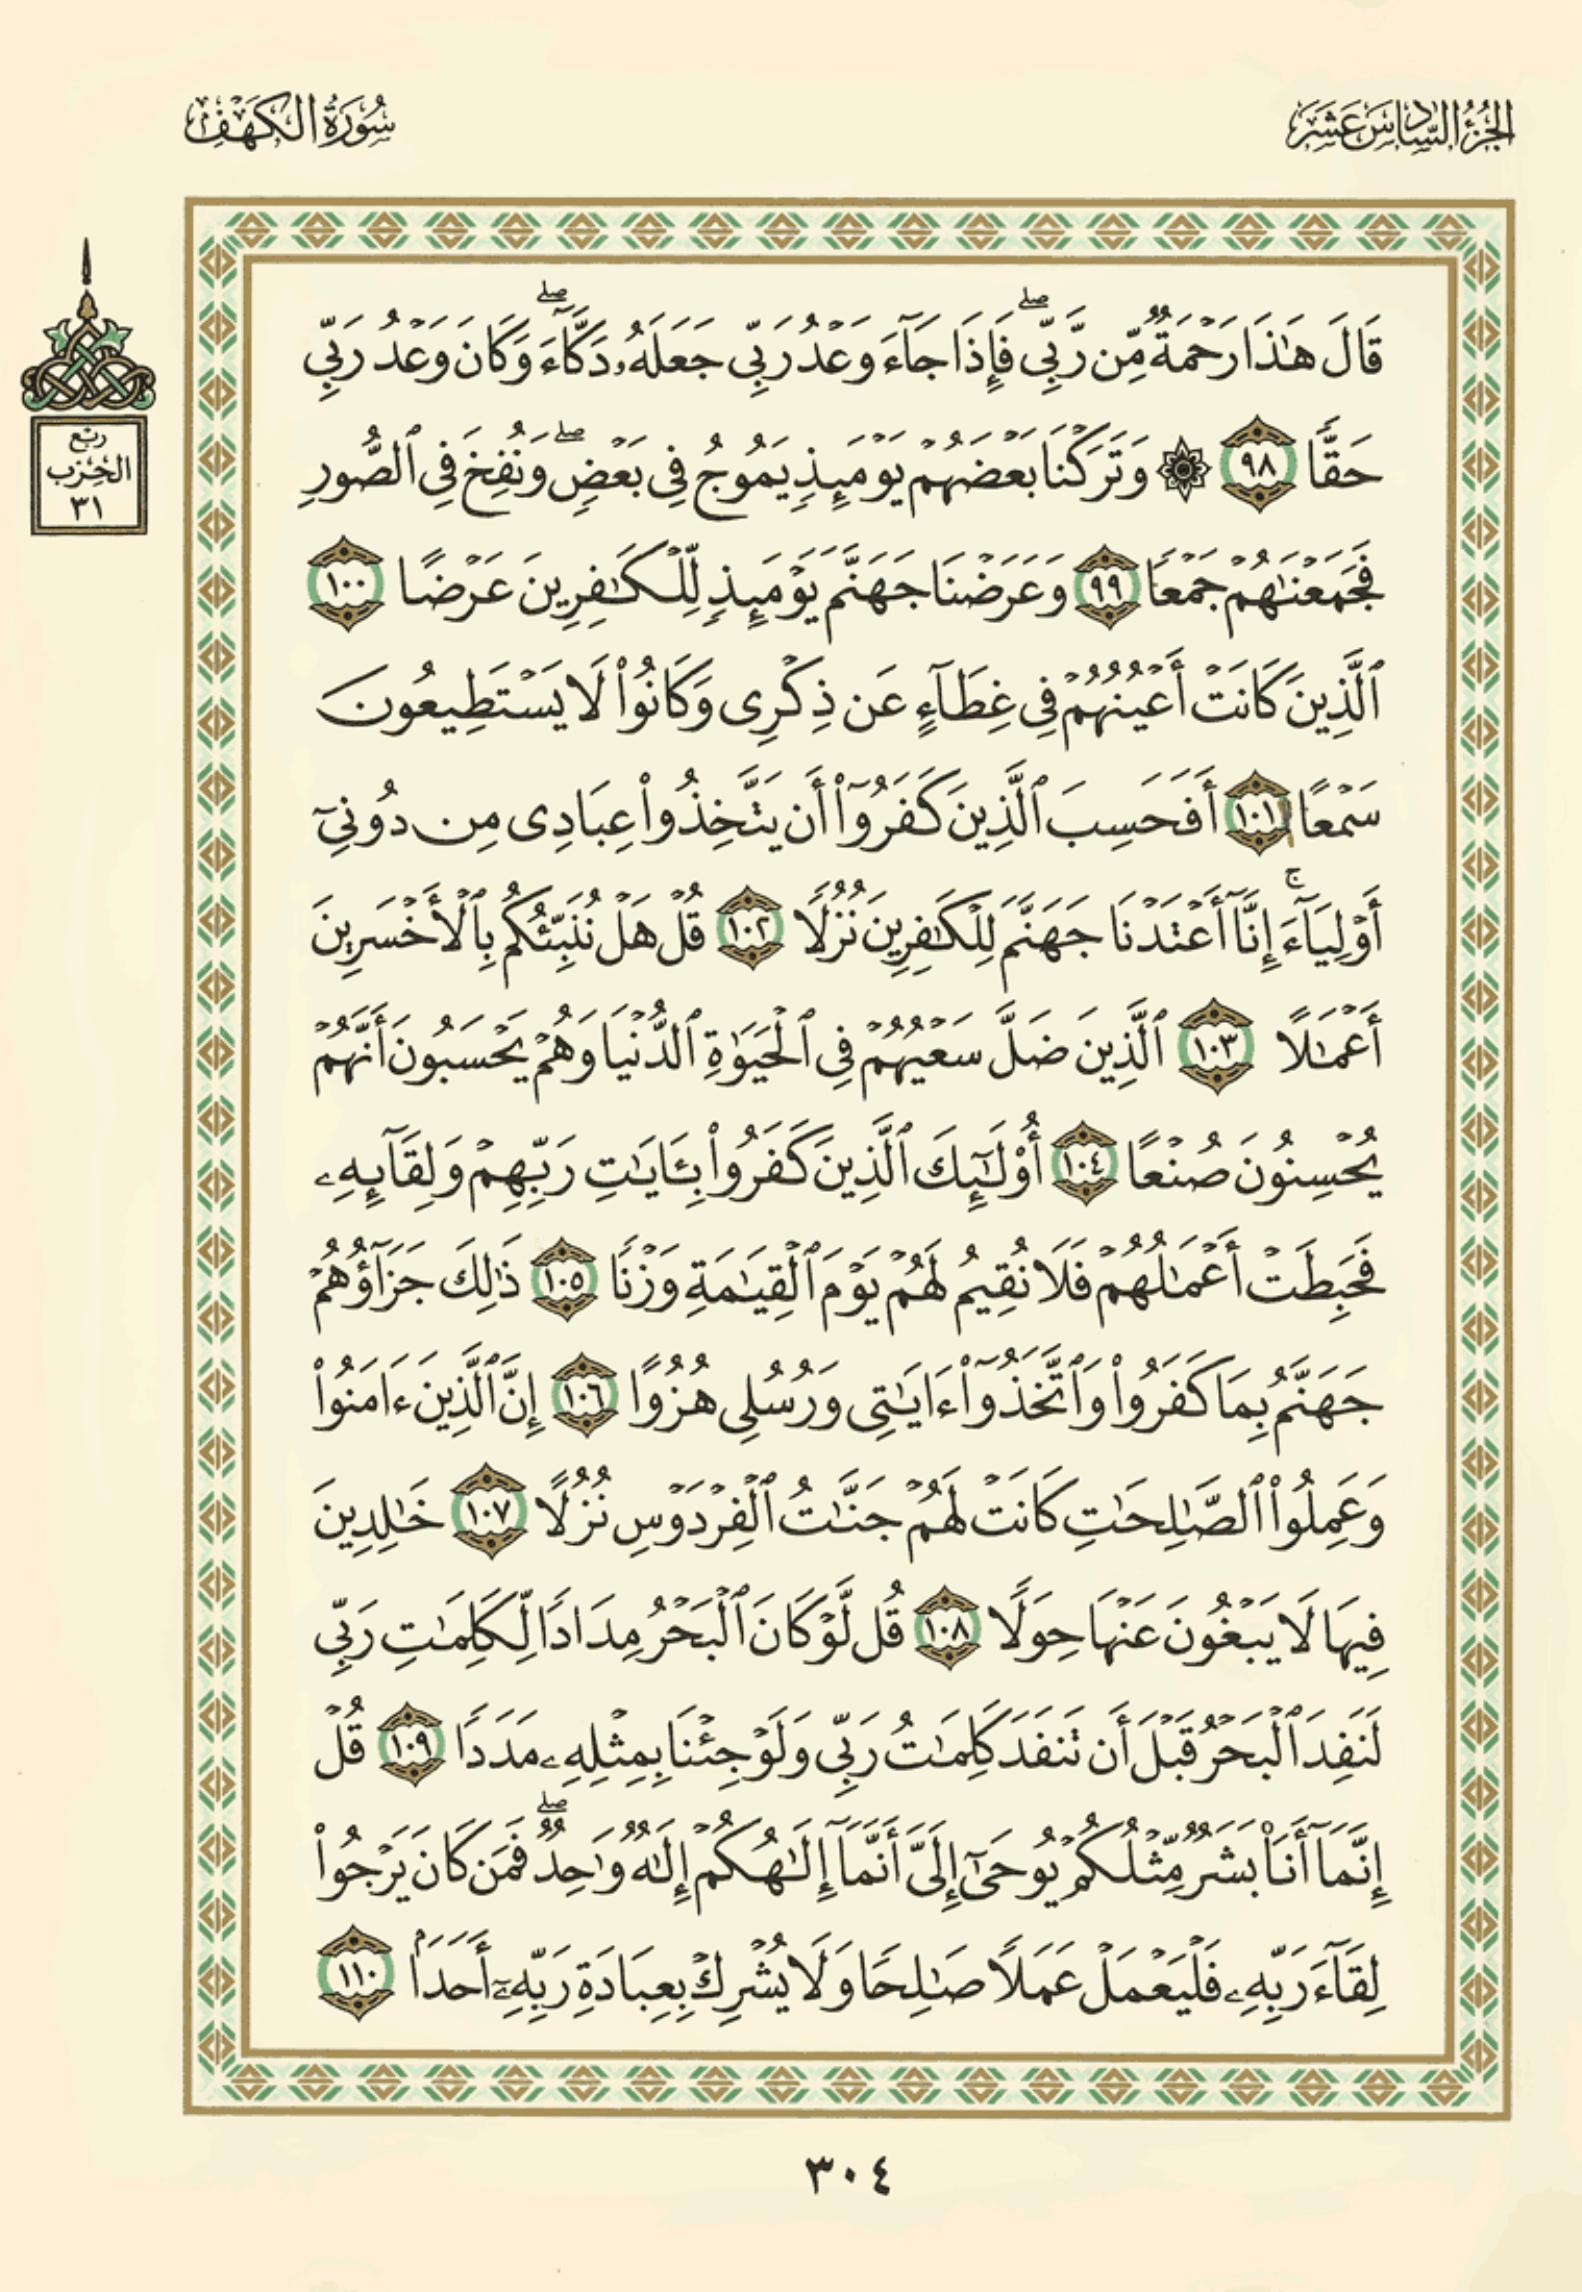 الجزء السادس عشر
سورة الكهف
ربع
الحزب
٣١
قَالَ هَـٰذَا رَحْمَةٌ مِّن رَّبِّى ۖ فَإِذَا جَآءَ وَعْدُ رَبِّى جَعَلَهُۥ دَكَّآءَ ۖ وَكَانَ وَعْدُ رَبِّى
حَقًّا ٩٨ ۞ وَتَرَكْنَا بَعْضَهُمْ يَوْمَئِذٍ يَمُوجُ فِى بَعْضٍ ۖ وَنُفِخَ فِى ٱلصُّورِ
فَجَمَعْنَـٰهُمْ جَمْعًا ٩٩ وَعَرَضْنَا جَهَنَّمَ يَوْمَئِذٍ لِّلْكَـٰفِرِينَ عَرْضًا ١٠٠
ٱلَّذِينَ كَانَتْ أَعْيُنُهُمْ فِى غِطَآءٍ عَن ذِكْرِى وَكَانُوا۟ لَا يَسْتَطِيعُونَ
سَمْعًا ١٠١ أَفَحَسِبَ ٱلَّذِينَ كَفَرُوٓا۟ أَن يَتَّخِذُوا۟ عِبَادِى مِن دُونِىٓ
أَوْلِيَآءَ ۚ إِنَّآ أَعْتَدْنَا جَهَنَّمَ لِلْكَـٰفِرِينَ نُزُلًا ١٠٢ قُلْ هَلْ نُنَبِّئُكُم بِٱلْأَخْسَرِينَ
أَعْمَـٰلًا ١٠٣ ٱلَّذِينَ ضَلَّ سَعْيُهُمْ فِى ٱلْحَيَوٰةِ ٱلدُّنْيَا وَهُمْ يَحْسَبُونَ أَنَّهُمْ
يُحْسِنُونَ صُنْعًا ١٠٤ أُو۟لَـٰٓئِكَ ٱلَّذِينَ كَفَرُوا۟ بِـَٔايَـٰتِ رَبِّهِمْ وَلِقَآئِهِۦ
فَحَبِطَتْ أَعْمَـٰلُهُمْ فَلَا نُقِيمُ لَهُمْ يَوْمَ ٱلْقِيَـٰمَةِ وَزْنًا ١٠٥ ذَٰلِكَ جَزَآؤُهُمْ
جَهَنَّمُ بِمَا كَفَرُوا۟ وَٱتَّخَذُوٓا۟ ءَايَـٰتِى وَرُسُلِى هُزُوًا ١٠٦ إِنَّ ٱلَّذِينَ ءَامَنُوا۟
وَعَمِلُوا۟ ٱلصَّـٰلِحَـٰتِ كَانَتْ لَهُمْ جَنَّـٰتُ ٱلْفِرْدَوْسِ نُزُلًا ١٠٧ خَـٰلِدِينَ
فِيهَا لَا يَبْغُونَ عَنْهَا حِوَلًا ١٠٨ قُل لَّوْ كَانَ ٱلْبَحْرُ مِدَادًا لِّكَلِمَـٰتِ رَبِّى
لَنَفِدَ ٱلْبَحْرُ قَبْلَ أَن تَنفَدَ كَلِمَـٰتُ رَبِّى وَلَوْ جِئْنَا بِمِثْلِهِۦ مَدَدًا ١٠٩ قُلْ
إِنَّمَآ أَنَا۠ بَشَرٌ مِّثْلُكُمْ يُوحَىٰٓ إِلَىَّ أَنَّمَآ إِلَـٰهُكُمْ إِلَـٰهٌ وَٰحِدٌ ۖ فَمَن كَانَ يَرْجُوا۟
لِقَآءَ رَبِّهِۦ فَلْيَعْمَلْ عَمَلًا صَـٰلِحًا وَلَا يُشْرِكْ بِعِبَادَةِ رَبِّهِۦٓ أَحَدًۢا ١١٠
٣٠٤